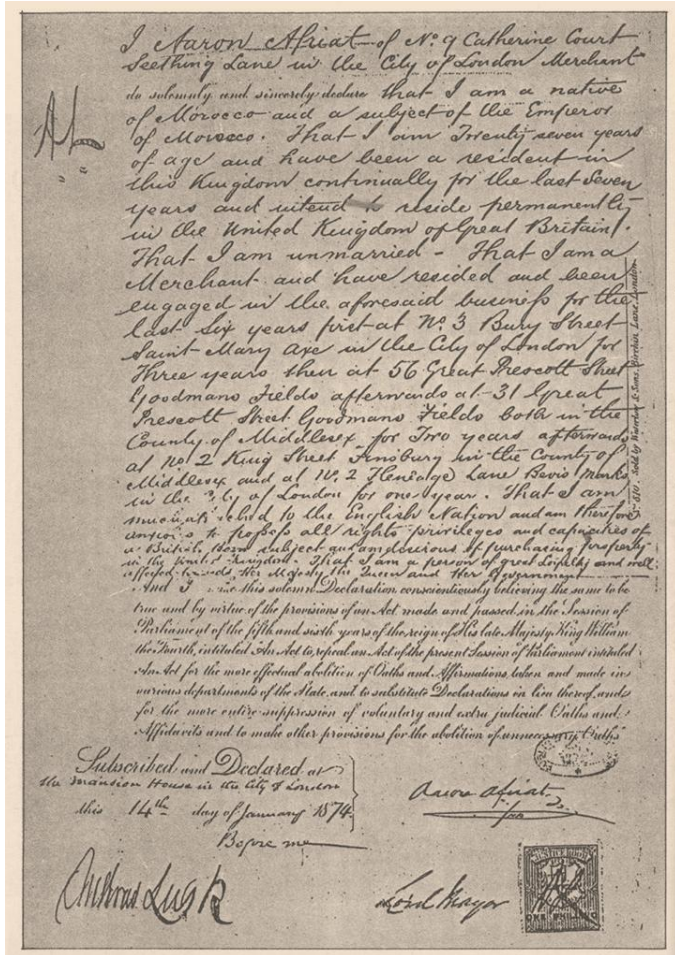 I Aaron Afriat of No. 9 Catherine Court
Seething Lane in the City of London Merchant
do solemnly and sincerely declare that I am a native
of Morocco and a subject of the Emperor
of Morocco. That I am Twenty seven years
of age and have been a resident in
this Kingdom continually for the last Seven
years and intend to reside permanently
in the United Kingdom of Great Britain.
That I am unmarried - That I am a
Merchant and have resided and been
engaged in the aforesaid business for the
last Six years first at No. 3 Bury Street
Saint Mary Axe in the City of London for
Three years then at 56 Great Prescott Street
Goodmans Fields afterwards at 31 Great
Prescott Street Goodmans Fields both in the
County of Middlesex for Two years afterwards
at No. 2 King Street Finsbury in the County of
Middlesex and at No. 2 Heneage Lane Bevis Marks
in the City of London for one year. That I am
much attached to the English Nation and am therefore
anxious to possess all rights privileges and capacities of
a British born subject and am desirous of purchasing property
in the United Kingdom. That I am a person of great Loyalty and well
affected towards Her Majesty the Queen and Her Government
And I this solemn Declaration conscientiously believing the same to be
true and by virtue of the provisions of an Act made and passed in the Session of
Parliament of the fifth and sixth years of the reign of His late Majesty King William
the Fourth, intituled An Act to repeal an Act of the present Session of Parliament intituled
An Act for the more effectual abolition of Oaths and Affirmations taken and made in
various departments of the State and to substitute Declarations in lieu thereof, and
for the more entire suppression of voluntary and extra judicial Oaths and
Affidavits and to make other provisions for the abolition of unnecessary Oaths
Subscribed and Declared at
the Mansion House in the City of London
this 14th day of January 1874
Before me
Aaron Afriat
Andrew Lusk
Lord Mayor
ONE SHILLING
Sold by Waterlow & Sons, Birchin Lane, London